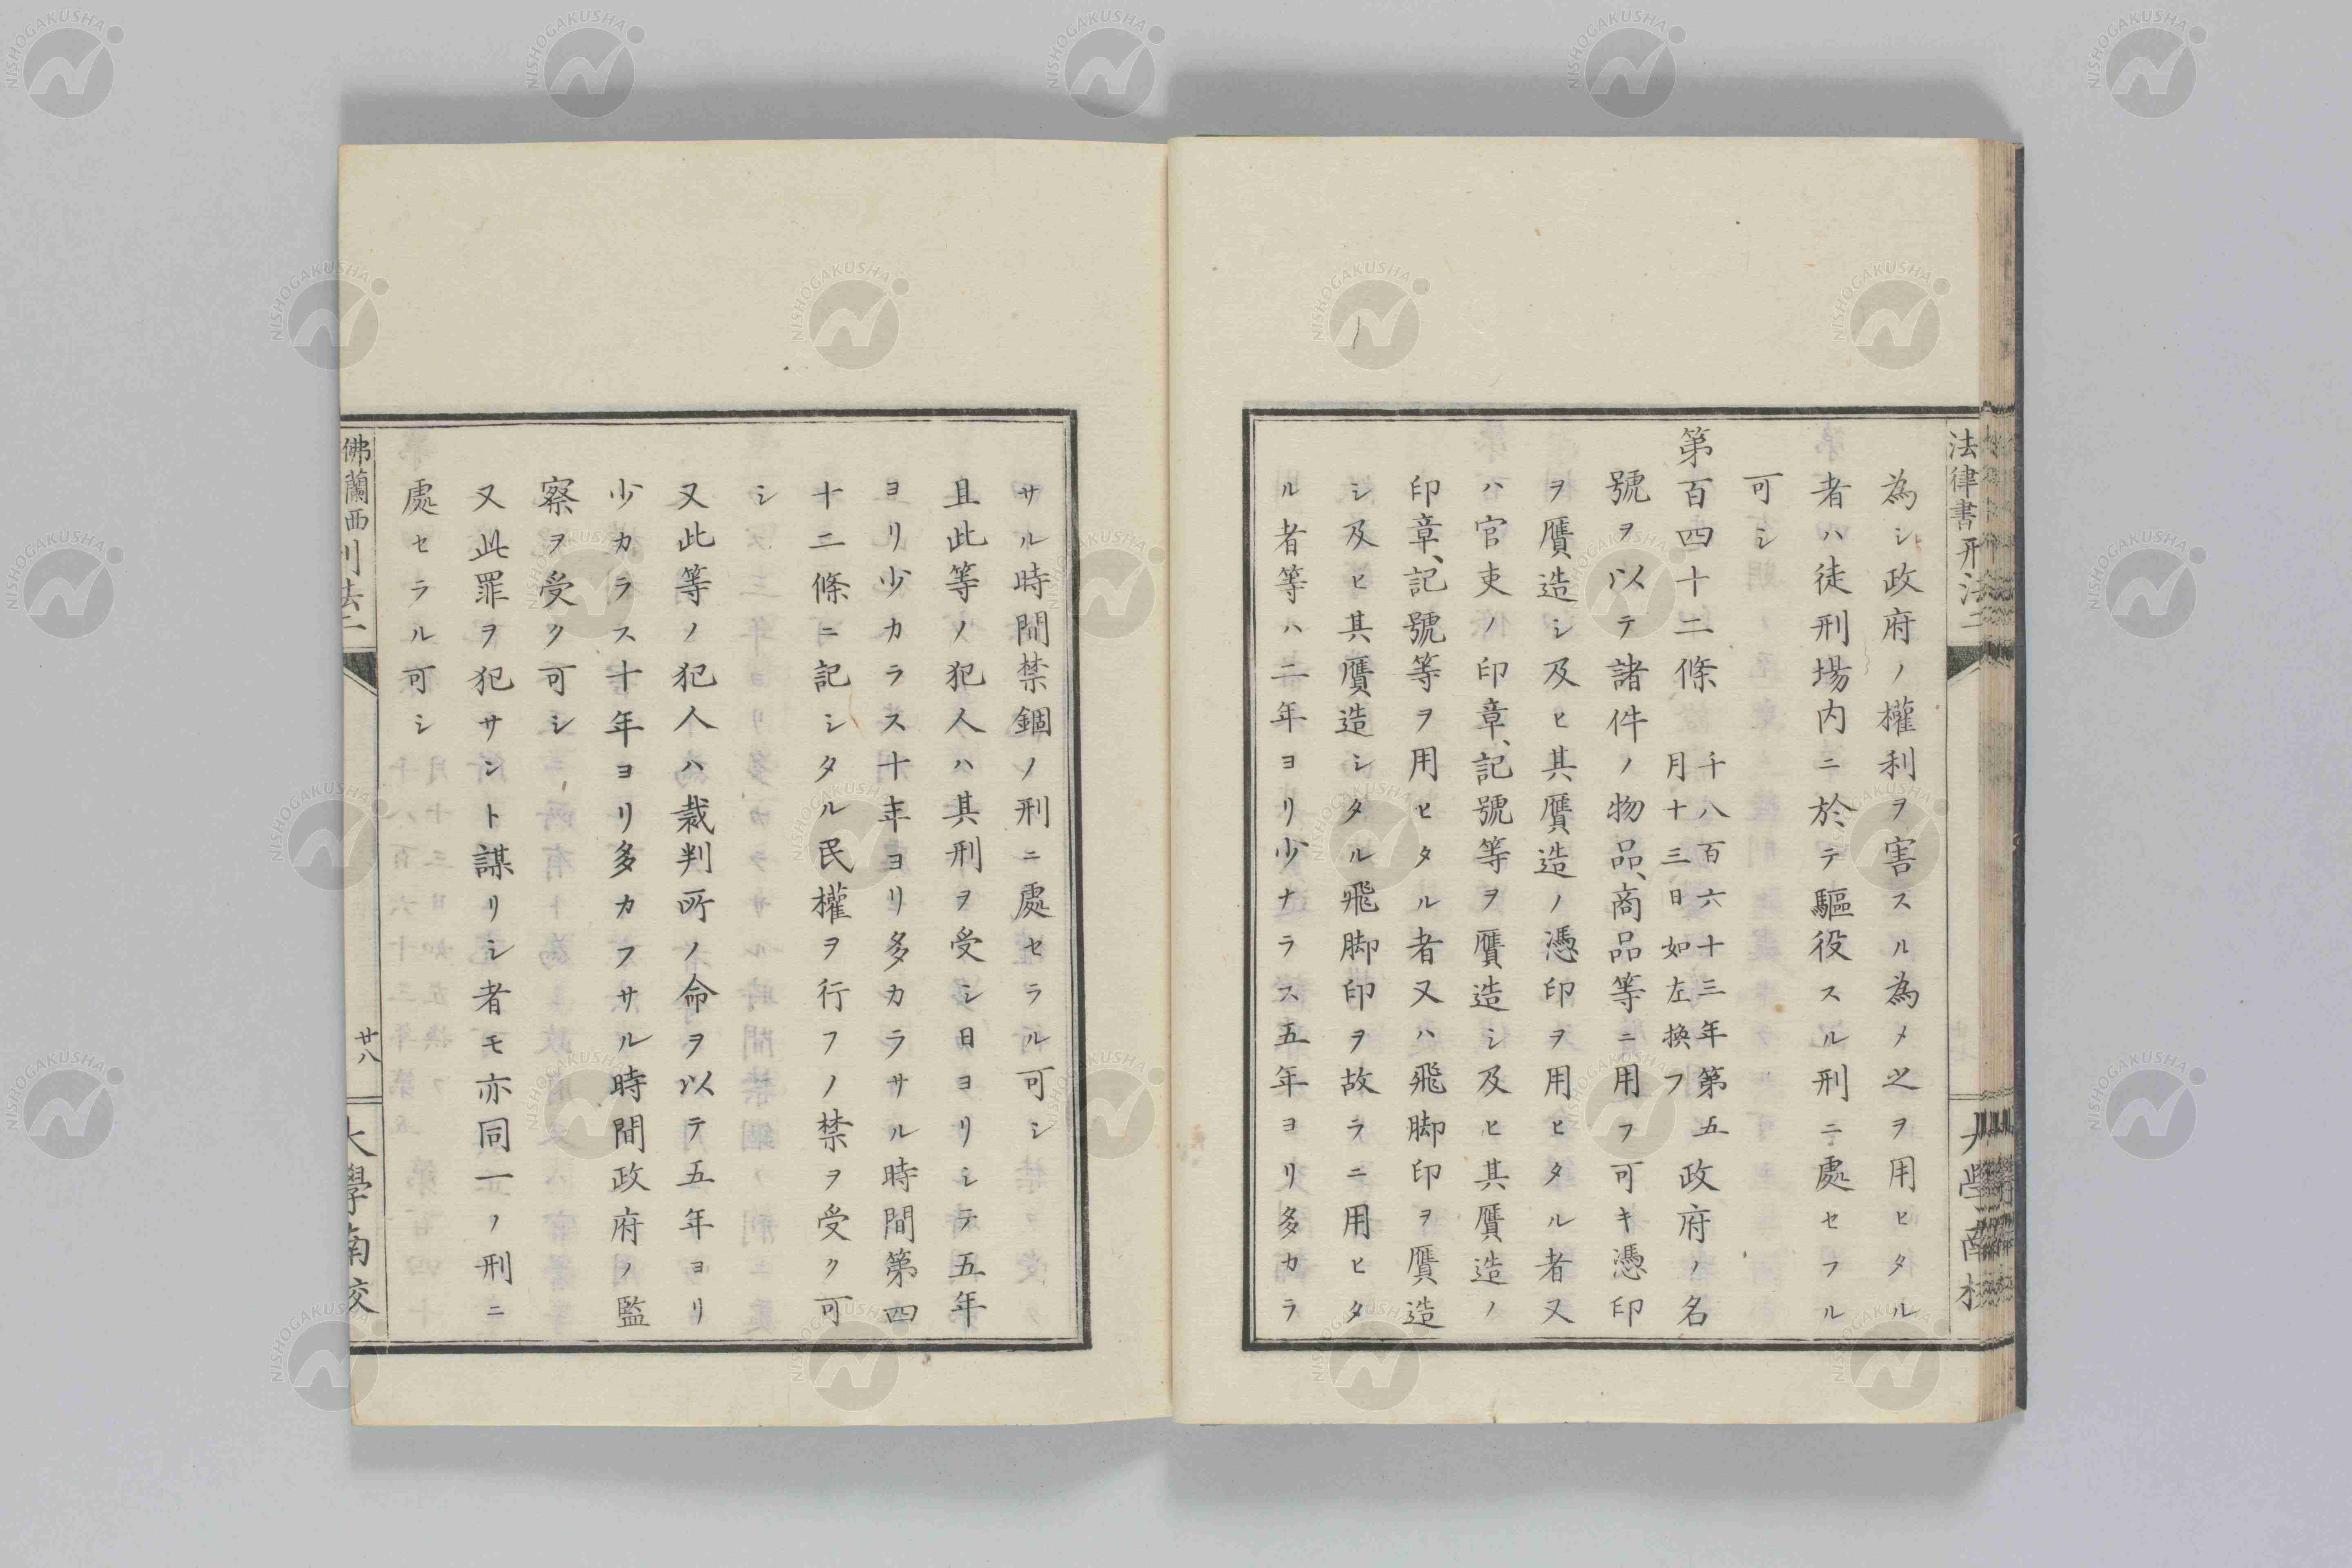 法律書刑法二
為シ政府ノ權利ヲ害スル為メ之ヲ用ヒタル
者ハ徒刑場内ニ於テ驅役スル刑ニ處セラル
可シ
第百四十二條
千八百六十三年第五
月十三日如左換フ
政府ノ名
號ヲ以テ諸件ノ物品、商品等ニ用フ可キ憑印
ヲ贋造シ及ヒ其贋造ノ憑印ヲ用ヒタル者又
ハ官吏ノ印章、記號等ヲ贋造シ及ヒ其贋造ノ
印章、記號等ヲ用ヒタル者又ハ飛脚印ヲ贋造
シ及ヒ其贋造シタル飛脚印ヲ故ラニ用ヒタ
ル者等ハ二年ヨリ少ナラス五年ヨリ多カラ
サル時間禁錮ノ刑ニ處セラル可シ
且此等ノ犯人ハ其刑ヲ受シ日ヨリシテ五年
ヨリ少カラス十年ヨリ多カラサル時間第四
十二條ニ記シタル民權ヲ行フノ禁ヲ受ク可
シ
又此等ノ犯人ハ裁判所ノ命ヲ以テ五年ヨリ
少カラス十年ヨリ多カフサル時間政府ノ監
察ヲ受ク可シ
又此罪ヲ犯サント謀リシ者モ亦同一ノ刑ニ
處セラル可シ
佛蘭西刑法二
廿八
大學南校
NISHOGAKUSHA